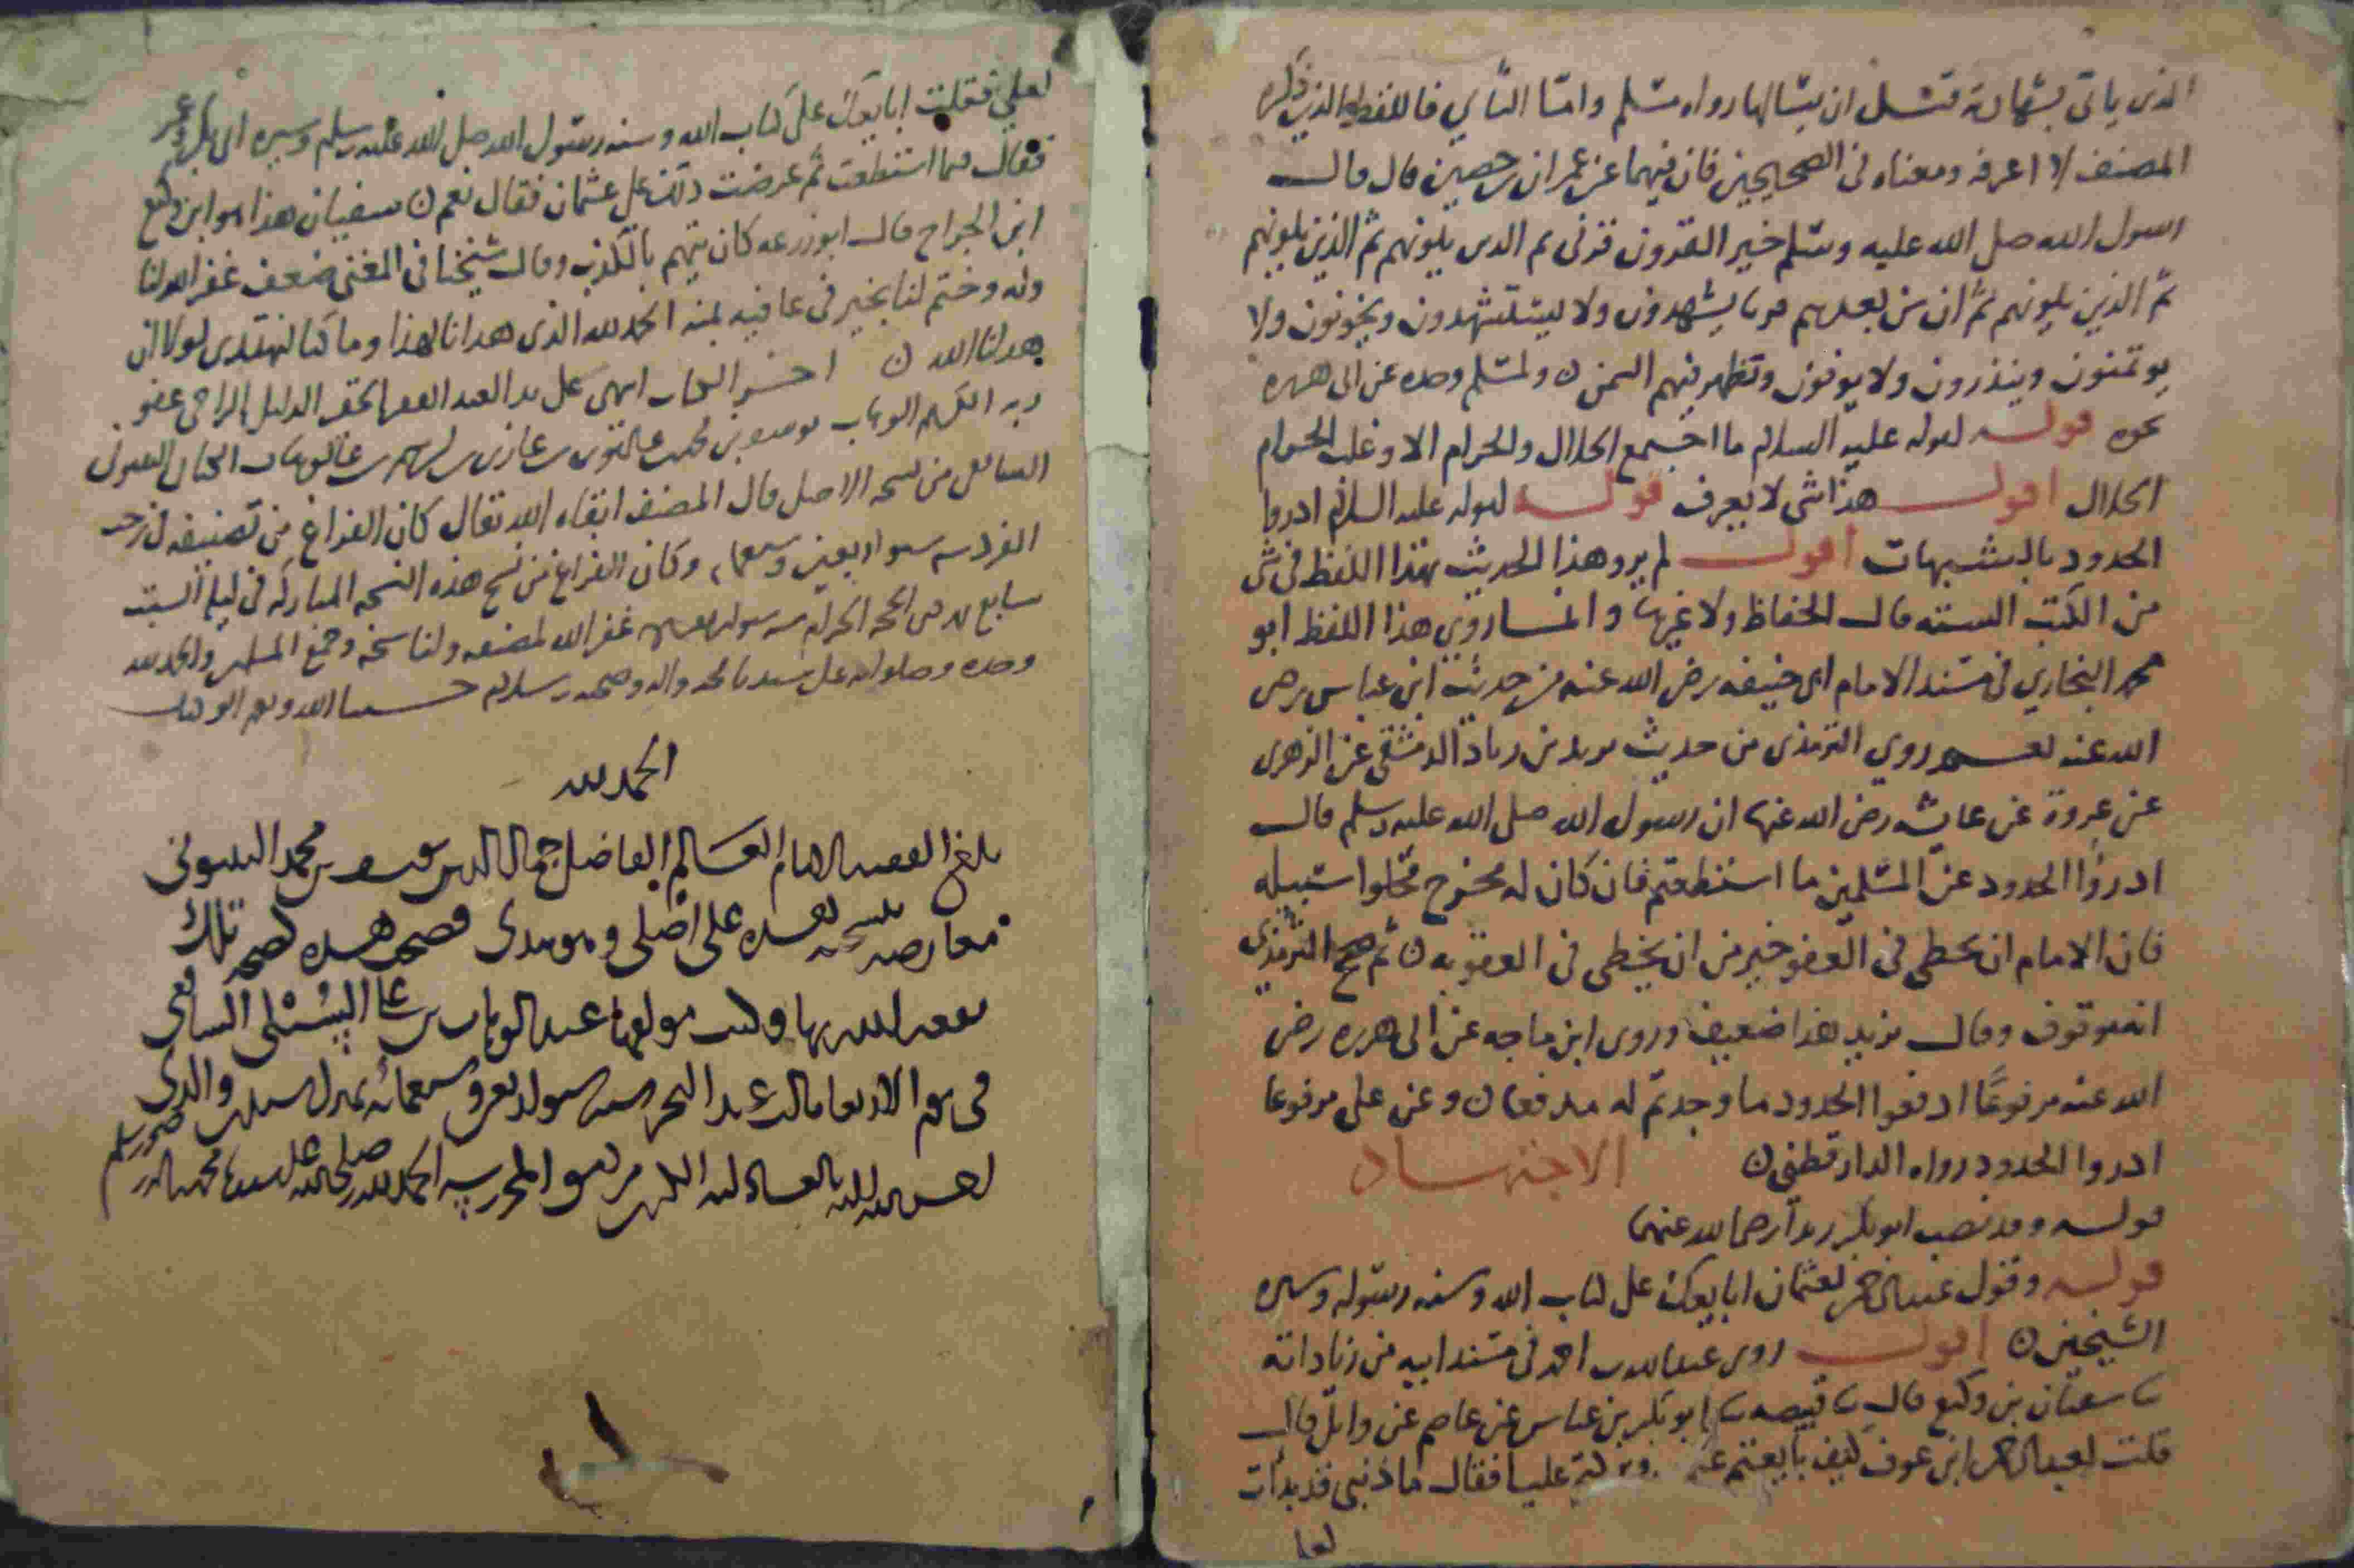 الذى ياتى بشهادته قبل ان يسالها رواه مسلم واما الثاني فاللفظ الذى ذكره
المصنف لا اعرفه ومعناه فى الصحيحين فان فيهما عن عمران بن حصين قال قال
رسول الله صلى الله عليه وسلم خير القرون قرنى ثم الذين يلونهم ثم الذين يلونهم
ثم الذين يلونهم ثم ان من بعدهم قوما يشهدون ولا يستشهدون ويخونون ولا
يوتمنون وينذرون ولا يوفون وتظهر فيهم السمن ولمسلم وحده عن ابى هريره
نحوه قوله لقوله عليه السلام ما اجتمع الحلال والحرام الا وغلب الحرام
الحلال اقول هذا شى لا يعرف قوله لقوله عليه السلام ادروا
الحدود بالشبهات اقول لم يرو هذا الحديث بهذا اللفظ فى شى
من الكتب السته قال الحفاظ ولا غيرها وانما روى هذا اللفظ ابو
محمد البخارى فى مسند الامام ابى حنيفه رضى الله عنه من حديث ابن عباس رضى
الله عنه نعم روى الترمذى من حديث يزيد بن زياد الدمشقى عن الزهرى
عن عروة عن عايشه رضى الله عنها ان رسول الله صلى الله عليه وسلم قال
ادروا الحدود عن المسلمين ما استطعتم فان كان له مخرج فخلوا سبيله
فان الامام ان يخطى فى العفو خير من ان يخطى فى العقوبه ثم صحح الترمذى
انه موقوف وقال يزيد هذا ضعيف وروى ابن ماجه عن ابى هريره رضى
الله عنه مرفوعا ادفعوا الحدود ما وجدتم له مدفعا وعن على مرفوعا
ادروا الحدود رواه الدارقطنى الاجتهاد
قوله وقد نصب ابو بكر زيدا رضى الله عنهما
قوله وقول عبد الرحمن لعثمان ابايعك على كتاب الله وسنه رسوله وسيره
الشيخين اقول روى عبد الله بن احمد فى مسند ابيه من زياداته
ثنا سفيان بن وكيع قال ثنا قبيصه ثنا ابو بكر بن عياش عن عاصم عن وائل قال
قلت لعبد الرحمن ابن عوف كيف بايعتم عثمن وتركتم عليا فقال ما ذنبى قد بدات
لعلى فقلت ابايعك على كتاب الله وسنه رسول الله صلى الله عليه وسلم وسيره ابى بكر وعمر
فقال فيما استطعت ثم عرضت ذلك على عثمان فقال نعم سفيان هذا هو ابن وكيع
ابن الجراح قال ابو زرعه كان يتهم بالكذب وقال شيخنا فى المغنى ضعف غفر الله لنا
وله وختم لنا بخير فى عافيه بمنه الحمد لله الذى هدانا لهذا وما كنا لنهتدى لولا ان
هدانا الله اخر الكتاب انهى على يد العبد الفقير الحقير الذليل الراجى عفو
ربه الكريم الوهاب يوسف بن محمد بن
من نسخه الاصل قال المصنف ابقاه الله تعالى كان الفراغ من تصنيفه فى رجب
الفرد سنه سبع واربعين وسبعمايه وكان الفراغ من نسخ هذه النسخه المباركه فى ليله السبت
سابع غفر الله لمصنفه ولناسخه وجميع المسلمين والحمد لله
وحده وصلواته على سيدنا محمد واله وصحبه وسلامه حسبنا الله ونعم الوكيل
الحمد لله
بلغ الفقيه الامام العالم الفاضل جمال الدين يوسف بن محمد
معارضه بنسخته هذه على اصلى وهو بيدى فصح هذه تلك
نفعه الله بها وكتب مولفها عبد الوهاب بن على السبكى الشافعى
فى يوم الاربعا ثالث عيد النحر سنه سبع واربعين وسبعمائه بمنزل والدى
الحمد لله وصلى الله على سيدنا محمد